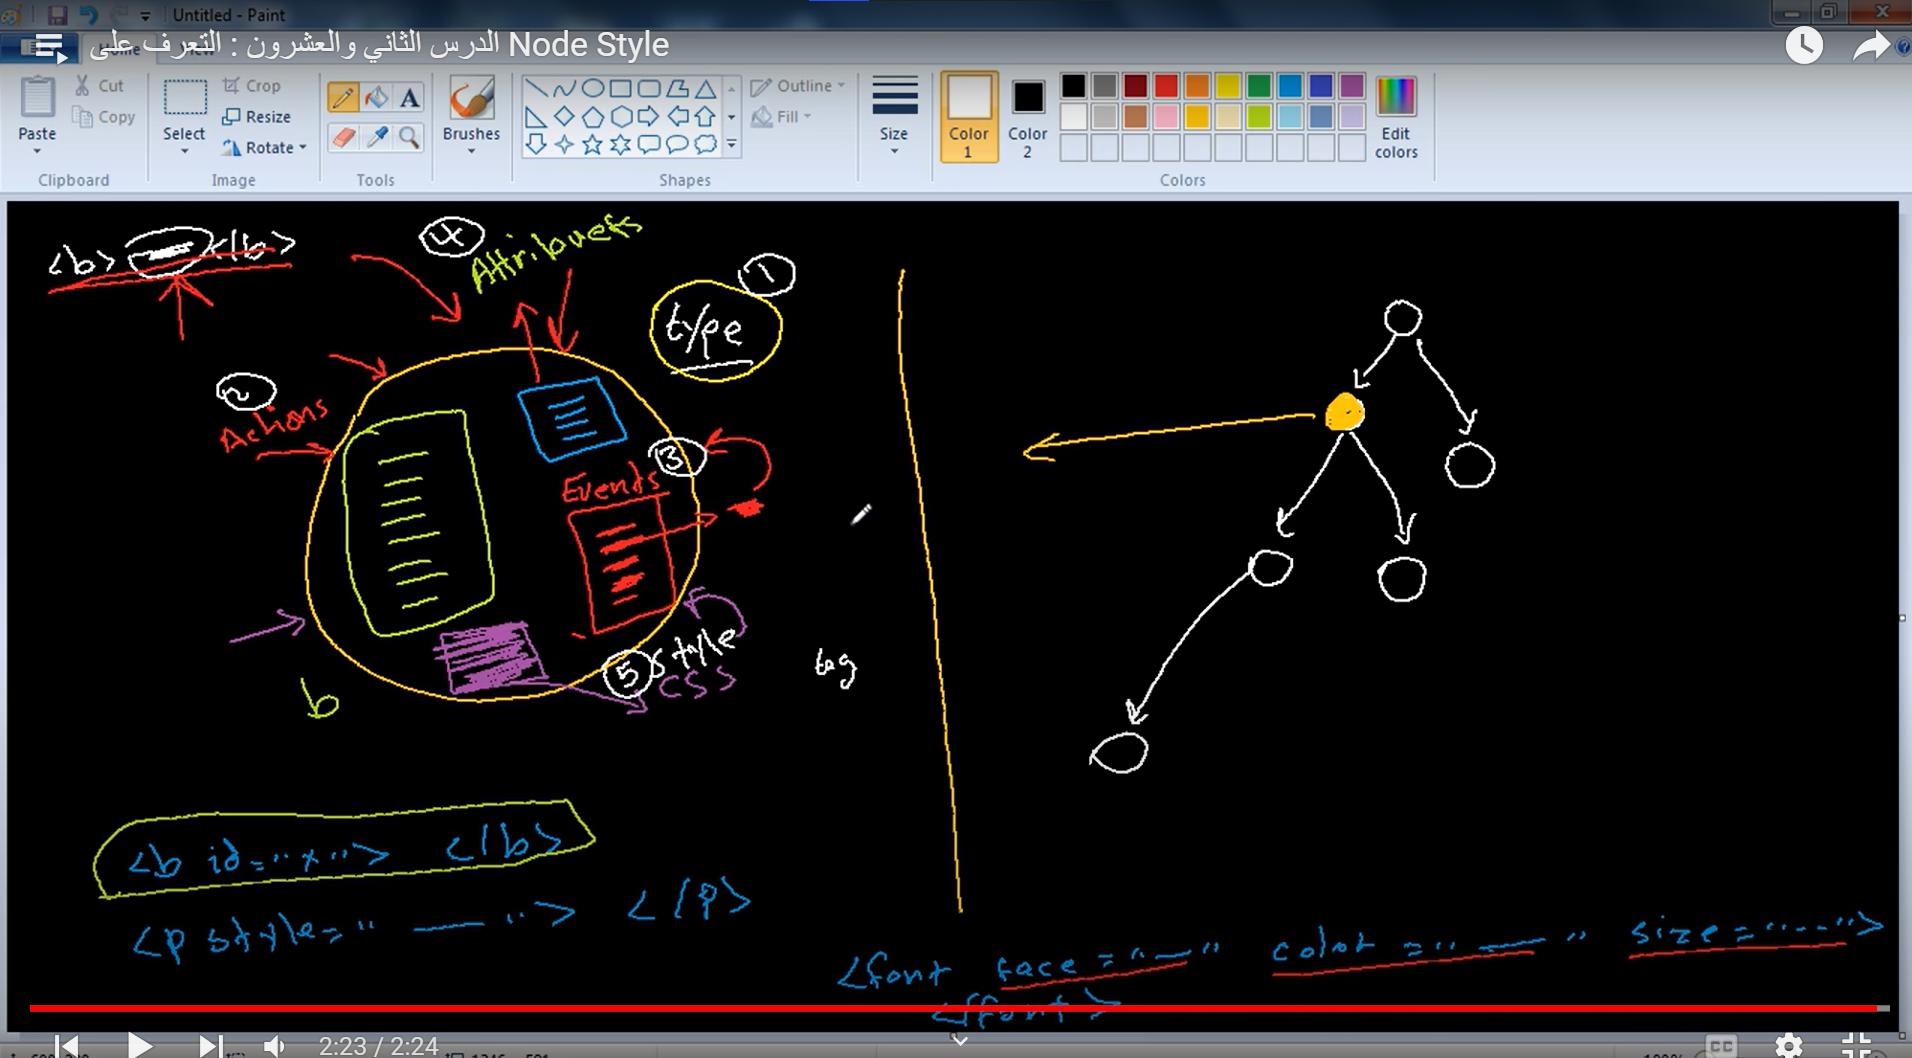 Untitled - Paint
الدرس الثاني والعشرون : التعرف على Node Style
Cut
Copy
Paste
Clipboard
Crop
Resize
Rotate
Select
Image
A
Tools
Brushes
Outline
Fill
Shapes
Size
Color 1
Color 2
Edit colors
Colors
<b> </b>
4
Attribuets
1
type
2
Actions
3
Events
5 style
css
b
tag
<b id="x"> </b>
<p style=" — "> </p>
<font face="—" color="—" size="---">
</font>
2:23 / 2:24
CC